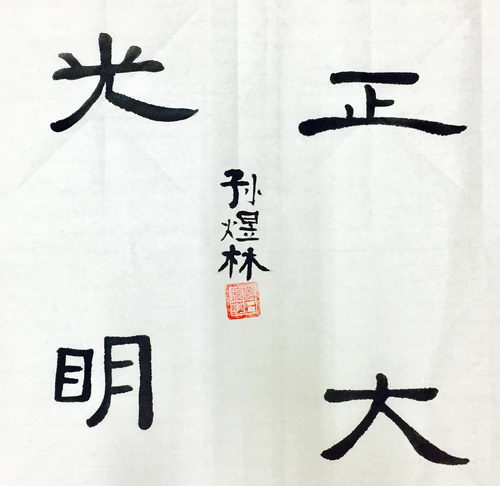 正大
光明
孙煜林